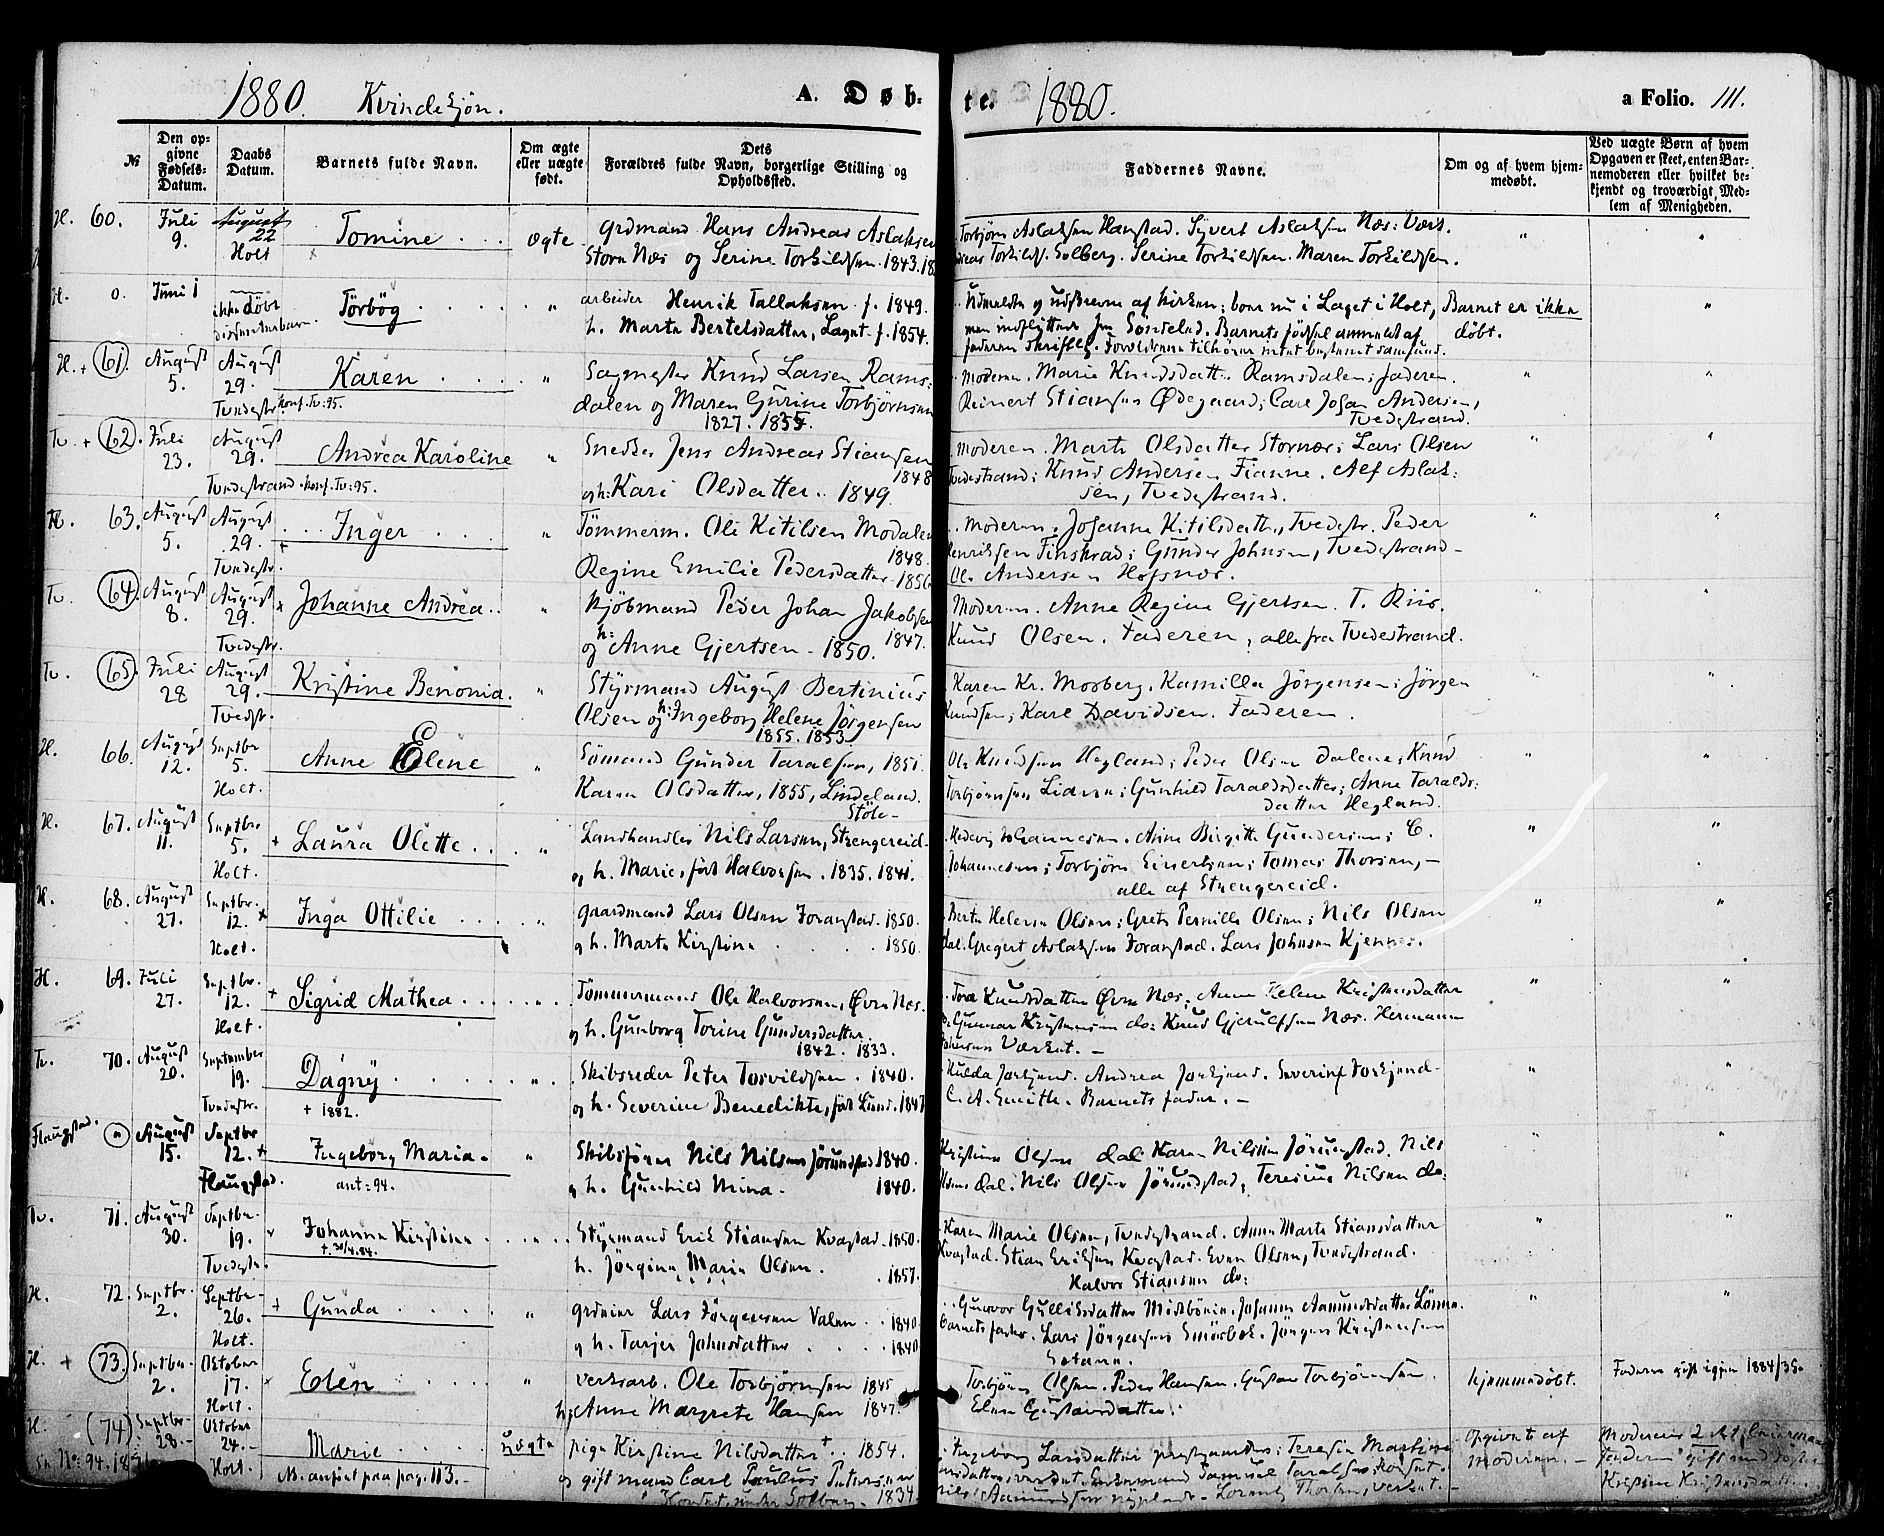 1880. Kvindekjøn. A. Døb-
te. 1880. a Folio. 111.
№
Den op-
givne
Fødsels-
Datum.
Daabs
Datum.
Barnets fulde Navn.
Om ægte
eller uægte
født.
Dets
Forældres fulde Navn, borgerlige Stilling og
Opholdssted.
Faddernes Navne.
Om og af hvem hjem-
medøbt.
Ved uægte Børn af hvem
Opgaven er skeet, enten Bar-
nemoderen eller hvilket be-
kjendt og troværdigt Med-
lem af Menigheden.
H. 60. Juli 9. August 22 Holt Tomine ægte
Grdmand Hans Andreas Aslaksen
Store Næs og Serine Torkildsen. 1843.
Torbjørn Aslaksen Hanstad. Syvert Aslaksen Næs: Værk.
Torkilds. Solberg. Serine Torkildsen. Maren Torkildsen.
H. 0. Juni 1 ikke døbt dissenterbarn. Törbög "
arbeider Henrik Tallaksen f. 1849.
h. Marte Bertelsdatter, Laget f. 1854.
Udmeldte og udskrevne af kirken; boer nu i Laget i Holt,
men indflyttede fra Søndeled. Barnets födsel anmeldt af
faderen skriftlig. Forældrene tilhører intet bestemt samfund.
Barnet er ikke
døbt. "
H. + 61. August 5. August 29. Tvedestr. Konf. Tv: 95. Karen "
Sagmester Knud Larsen Rams-
dalen og Maren Gurine Torbjørnsen
1827. 1835.
Moderen. Marie Knudsdatt. Ramsdalen; faderen.
Reinert Stiansen Ødegaard; Carl Johan Andersen,
Tvedestrand.
Tv. + 62. Juli 23. August 29. Tvedestrand. Konf. Tv: 95. Andrea Karoline "
Snedker Jens Andreas Stiansen
1848
og h: Kari Olsdatter. 1849.
Moderen. Marte Olsdatter Stornæs; Lars Olsen
Tvedestrand; Knud Andersen Fianne. Alf Aslak-
sen, Tvedestrand.
H. 63. August 5. August 29. Tvedestr. Inger "
Tömmerm. Ole Kitilsen Modalen
1848.
Regine Emilie Pedersdatter. 1856
Moderen. Johanne Kitilsdatt., Tvedestr. Peder
Henriksen Finskrad; Gunder Johnsen, Tvedestrand-
Ole Andersen Hofsnæs.
Tv. 64. August 8. August 29. Tvedestr. Johanne Andrea "
Kjöbmand Peder Johan Jakobsen
1847.
og h: Anne Gjertsen - 1850.
Moderen. Anne Regine Gjertsen. T. Riis.
Knud Olsen. Faderen, alle fra Tvedestrand.
Tv. 65. Juli 28 August 29. Tvedestr. Kristine Benonia. "
Styrmand August Bertinius
Olsen og h: Ingeborg Helene Jörgensen
1855. 1853
Karen Kr. Mosberg. Kamilla Jörgensen; Jörgen
Knudsen; Karl Davidsen. Faderen.
H. 66. August 12. Septbr 5. Holt. Anne Elene "
Sømand Gunder Taralsen, 1851.
Karen Olsdatter, 1855, Lindeland.
Ole Knudsen Hegland; Peder Olsen Dalene; Knud
Torbjørnsen Lidene; Gunhild Taraldsdatter; Anne Taralds-
datter Hegland.
H. 67. August 11. Septbr. 5. Holt. + Laura Olette. "
Støle-
Landhandler Nils Larsen, Strengereid-
og h. Marie, født Halvorsen. 1835. 1841.
Hedevig Johannesen. Anne Birgitte Gundersen; C.
Johannesen; Torbjörn Einertsen; Tomas Thorsen, -
alle af Strengereid.
H. 68. August 27. Septbr. 12. Holt. Inga Ottilie "
Gaardmand Lars Olsen Foranstad. 1850.
og h. Marte Kirstine 1850.
Berte Helene Olsen; Grete Pernille Olsen; Nils Olsen
dal. Gregert Aslaksen Foranstad. Lars Johnsen Kjennes.
H. 69. Juli 27. Septbr. 12. Holt. + Sigrid Mathea. "
Tømmermand Ole Halvorsen, Øvre Næs.
og h. Gunborg Torine Gundersdatter.
1842. 1833.
Tora Knudsdatter Øvre Næs; Anne Helene Kristensdatter
do; Gunnar Kristensen do: Knud Gjerulfsen Næs. Hermann
Johnsen Værket. -
Tv. 70. August 20. September 19. Tvedestr. Dagny. + 1882. "
Skibsreder Peter Torvildsen. 1840.
og h. Severine Benedikte, født Lund. 1847
Hulda Forkjend. Andrea Forkjend. Severin Forkjend-
C. A. Smith. Barnets fader. -
Flaugstad. August 15. Septbr 12. Flaugstad. Ingeborg Maria. ant: 94. "
Skibsfører Nils Nilsen Jörundstad 1840.
og h. Gunhild Mina. 1840.
Kristine Olsen dal Karen Nilssen Jörundstad. Nils
Olsen dal. Nils Olsen Jörundstad, Teresius Nilsen do.
Tv. 71. August 30. Septbr. 19. Tvedestr. Johanne Kirstine. + 30/4. 84. "
Styrmand Erik Stiansen Kvastad. 1850.
h. Jörgine Marie Olsen. 1857.
Karen Marie Olsen, Tvedestrand. Anne Marte Stiansdatter
Kvastad. Stian Eriksen Kvastad. Even Olsen, Tvedestrand.
Halvor Stiansen do:
H. 72. Septbr. 2. Septbr- 26. Holt. + Gunda "
Grdeier Lars Jörgensen Valen 1840
og h. Tarjer Johnsdatter 1840.
Gunvor Gulliksdatter Midtbøen. Johanne Aamundsdatter Lønne.
barnets fader. Lars Jörgensen Smørbek. Jörgen Kristensen
Gotane.
H. + 73. Septbr. 2. Oktober 17. Holt. Elen "
Verksarb. Ole Torbjørnsen 1845
h; Anne Margrete Hansen 1847.
Torbjörn Olsen. Peder Hansen. Gustav Torbjørnsen.
Elen Gustavsdatter.
hjemmedøbt. Faderen gift igjen 1884/35.
H. (74) Septbr- 28. Oktober 24. Holt. Marie uægte
NB. anført paa pag. 113. -
pige Kirstine Nilsdatter 1854.
og gift mand Carl Paulus Petersen
1834
Ingeborg Larsdatter Teresia Martine
Samuel Taralsen,
Aamundsen Lorentz Thorsen, verket. -
Opgivet af
moderen. -
Moderens 2det
faderen gift med
Kristine Kristensdatt.